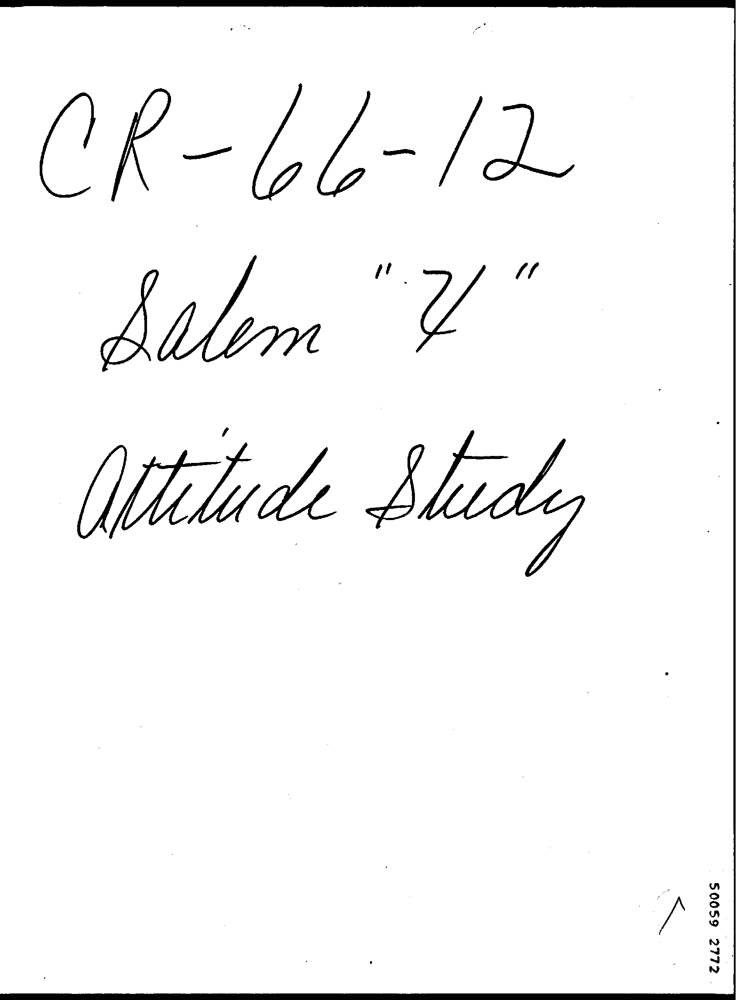 CR-66-12
Salem "Y"
Attitude Study
50059 2772